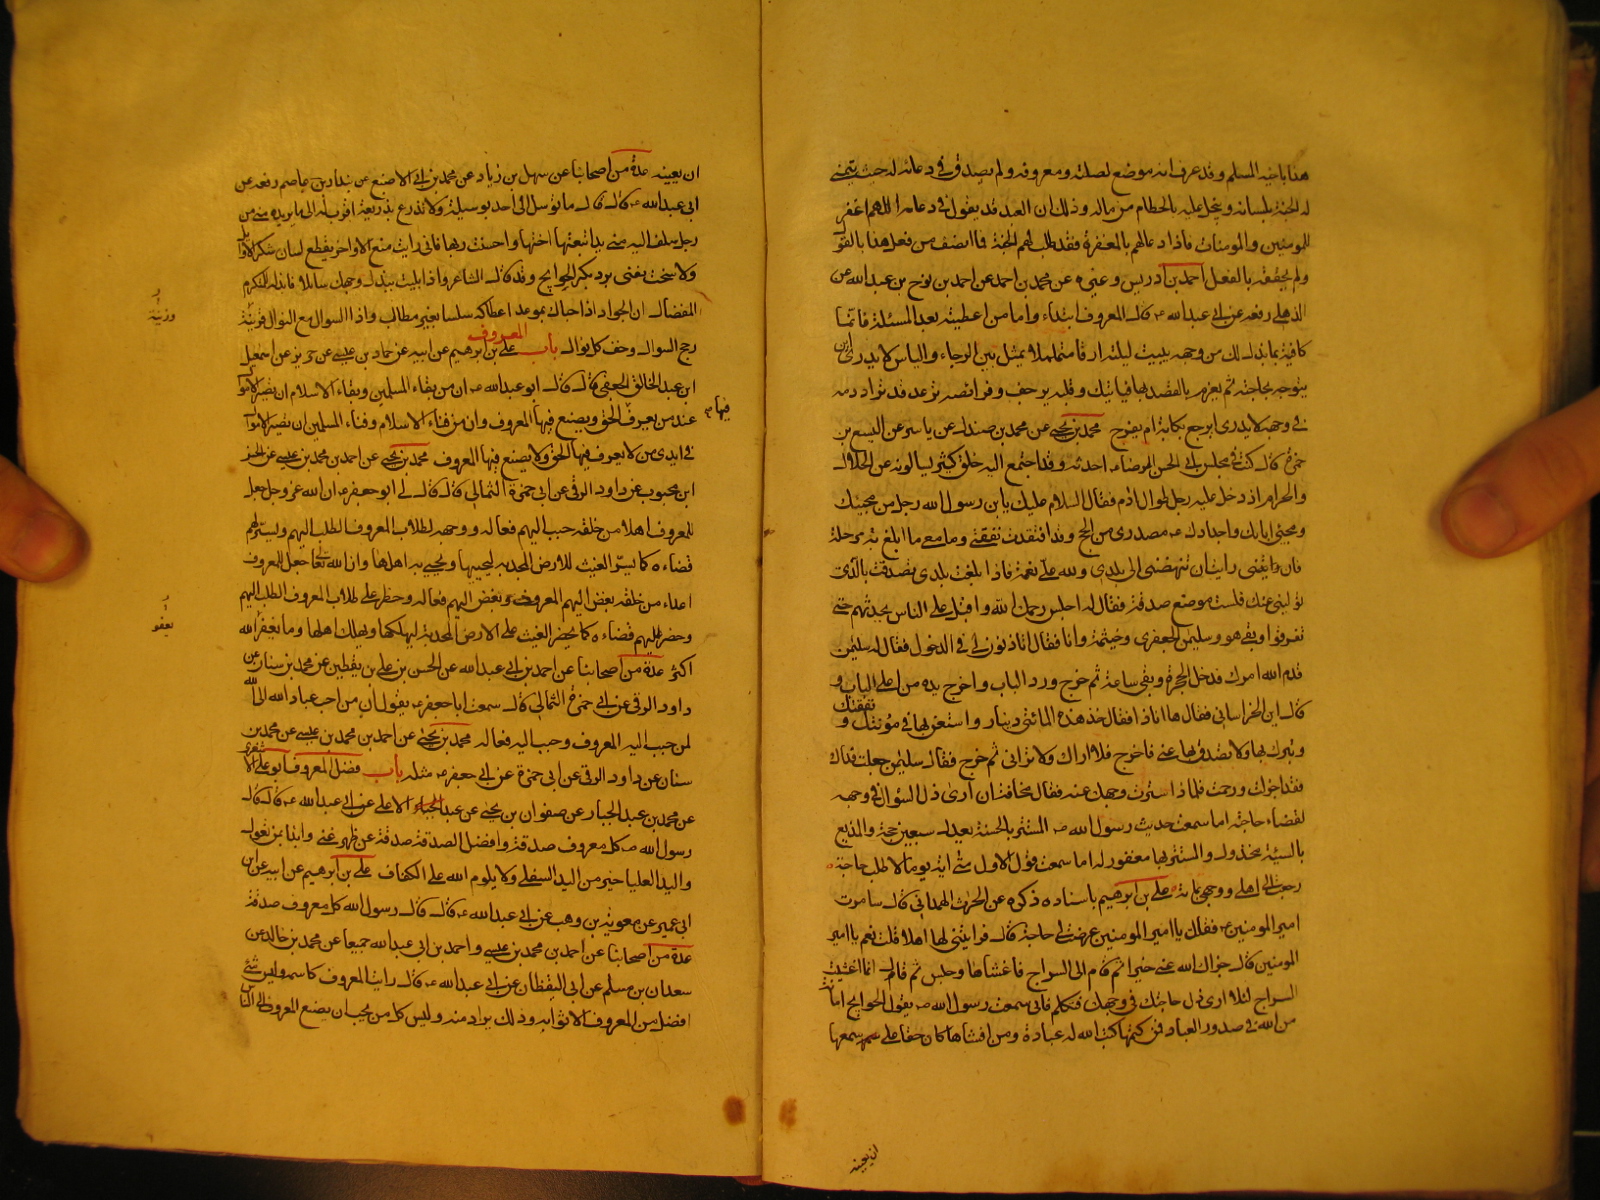 هذا باخيه المسلم وقد عرف انه موضع لصلته ومعروفه ولم يصدق في دعائه له حيث يتمنى
له الجنة بلسانه ويبخل عليه بالحطام من ماله وذلك ان العبد قد يقول في دعائه اللهم اغفر
للمومنين والمومنات فاذا دعالهم بالمغفرة فقد طلب لهم الجنة فما انصف من فعل هذا بالقول
ولم يحققه بالفعل احمد بن ادريس وغيره عن محمد بن احمد عن احمد بن نوح بن عبدالله عن
الذهلي رفعه عن ابي عبدالله ع قال المعروف ابتداء واما من اعطيته بعد المسئلة فانما
كافيته بما بذل لك من وجهه يبيت ليلته ارقا متململا يمثل بين الرجاء والياس لا يدري اين
يتوجه لحاجته ثم يعزم بالقصد لها فياتيك وقلبه يرجف وفرائصه ترعد قد ترى دمه
في وجهه لا يدري ايرجع بكابة ام بفرح محمد بن يحيى عن محمد بن صندل عن ياسر عن اليسع بن
حمزة قال كنت في مجلس ابي الحسن الرضا ع احدثه وقد اجتمع اليه خلق كثير يسالونه عن الحلال
والحرام اذ دخل عليه رجل طوال ادم فقال السلام عليك يا بن رسول الله رجل من محبيك
ومحبي ابائك واجدادك ع مصدري من الحج وقد افتقدت نفقتي وما معي ما ابلغ به مرحلة
فان رايت ان تنهضني الى بلدي ولله علي نعمة فاذا بلغت بلدي تصدقت بالذي
توليني عنك فلست موضع صدقة فقال له اجلس رحمك الله واقبل على الناس يحدثهم حتى
تفرقوا وبقي هو وسليمن الجعفري وخيثمة وانا فقال اتاذنون لي في الدخول فقال له سليمن
قدم الله امرك فدخل الحجرة وبقي ساعة ثم خرج ورد الباب واخرج يده من اعلى الباب و
قال اين الخراساني فقال ها انا ذا فقال خذ هذه المائتي دينار واستعن بها في مؤنتك و نفقتك
وتبرك بها ولا تصدق بها عني فاخرج فلا اراك ولا تراني ثم خرج فقال سليمن جعلت فداك
فقد اجزلت ورحمت فلماذا سترت وجهك عنه فقال مخافة ان ارى ذل السؤال في وجهه
لقضاء حاجته اما سمعت حديث رسول الله ص المستتر بالحسنة يعدل سبعين حجة والمذيع
بالسيئة مخذول والمستتر بها مغفور له اما سمعت قول الاول متى اته يوما لاطلب حاجة
رجعت الى اهلي ووجهي بمائه علي بن ابرهيم باسناده ذكره عن الحرث الهمداني قال سامرت
امير المومنين ع فقلت يا امير المومنين عرضت لي حاجة قال فرايتني لها اهلا قلت نعم يا امير
المومنين قال جزاك الله عني خيرا ثم قام الى السراج فاغشاها وجلس ثم قال انما اغشيت
السراج لئلا ارى ذل حاجتك في وجهك فتكلم فاني سمعت رسول الله ص يقول الحوايج امانة
من الله في صدور العباد فمن كتمها كتبت الله له عبادة ومن افشاها كان حقا على من سمعها
ان يعينه
ان يعينه عدة من اصحابنا عن سهل بن زياد عن محمد بن ابي الاصبغ عن بندار بن عاصم رفعه عن
ابي عبدالله ع قال قال ما توسل الي احد بوسيلة ولا تذرع بذريعة اقرب له الى ما يريده مني من
رجل سلف اليه مني يد اتبعتها اختها واحسنت ربها فاني رايت منع الاواخر يقطع لسان شكر الاوايل
ولا سخت نفسي برد بكر الحوايج وقد قال الشاعر واذا بليت ببذل وجهك سائلا فابذله للمتكرم
المفضال ان الجواد اذا حباك بموعد اعطاكه سلسا بغير مطال واذا السوال مع النوال قرنته
وزنته
رجح السوال وخف كل نوال باب المعروف علي بن ابرهيم عن ابيه عن حماد بن عيسى عن حريز عن اسمعيل
ابن عبد الخالق الجعفي قال قال ابو عبدالله ع ان من بقاء المسلمين وبقاء الاسلام ان تصير الاموال
عند من يعرف فيها الحق ويصنع فيها المعروف وان من فناء الاسلام وفناء المسلمين ان تصير الاموال
في ايدي من لا يعرف فيها الحق ولا يصنع فيها المعروف محمد بن يحيى عن احمد بن محمد بن عيسى عن الحسن
ابن محبوب عن داود الرقي عن ابي حمزة الثمالي قال قال لي ابو جعفر ع ان الله عز وجل جعل
للمعروف اهلا من خلقه حبب اليهم فعاله ووجه لطلاب المعروف الطلب اليهم ويسر لهم
قضاءه كما يسر الغيث للارض المجدبة ليحييها ويحيي به اهلها وان الله تعالى جعل للمعروف
اعداء من خلقه بغض اليهم المعروف وبغض اليهم فعاله وحظر على طلاب المعروف الطلب اليهم
وحضر عليهم قضاءه كما يحضر الغيث على الارض المجدبة ليهلكها ويهلك اهلها وما يغفر الله
يعفو
اكثر عدة من اصحابنا عن احمد بن ابي عبدالله عن الحسن بن علي بن يقطين عن محمد بن سنان عن
داود الرقي عن ابي حمزة الثمالي قال سمعت ابا جعفر ع يقول ان من احب عباد الله الى الله
لمن حبب اليه المعروف وحبب اليه فعاله محمد بن يحيى عن احمد بن محمد بن عيسى عن محمد بن
سنان عن داود الرقي عن ابي حمزة عن ابي جعفر ع مثله باب فضل المعروف ابو علي الاشعري
عن محمد بن عبد الجبار عن صفوان بن يحيى عن عبد الاعلى عن ابي عبدالله ع قال قال
رسول الله ص كل معروف صدقة وافضل الصدقة صدقة عن ظهر غنى وابدا بمن تعول
واليد العليا خير من اليد السفلى ولا يلوم الله على الكفاف علي بن ابرهيم عن ابيه عن ابن
ابي عمير عن معوية بن وهب عن ابي عبدالله ع قال قال رسول الله كل معروف صدقة
عدة من اصحابنا عن احمد بن محمد بن عيسى واحمد بن ابي عبدالله جميعا عن محمد بن خالد عن
سعدان بن مسلم عن ابي اليقظان عن ابي عبدالله ع قال رايت المعروف كاسمه وليس شئ
افضل من المعروف الا ثوابه وذلك يراد منه وليس كل من يحب ان يصنع المعروف الى الناس